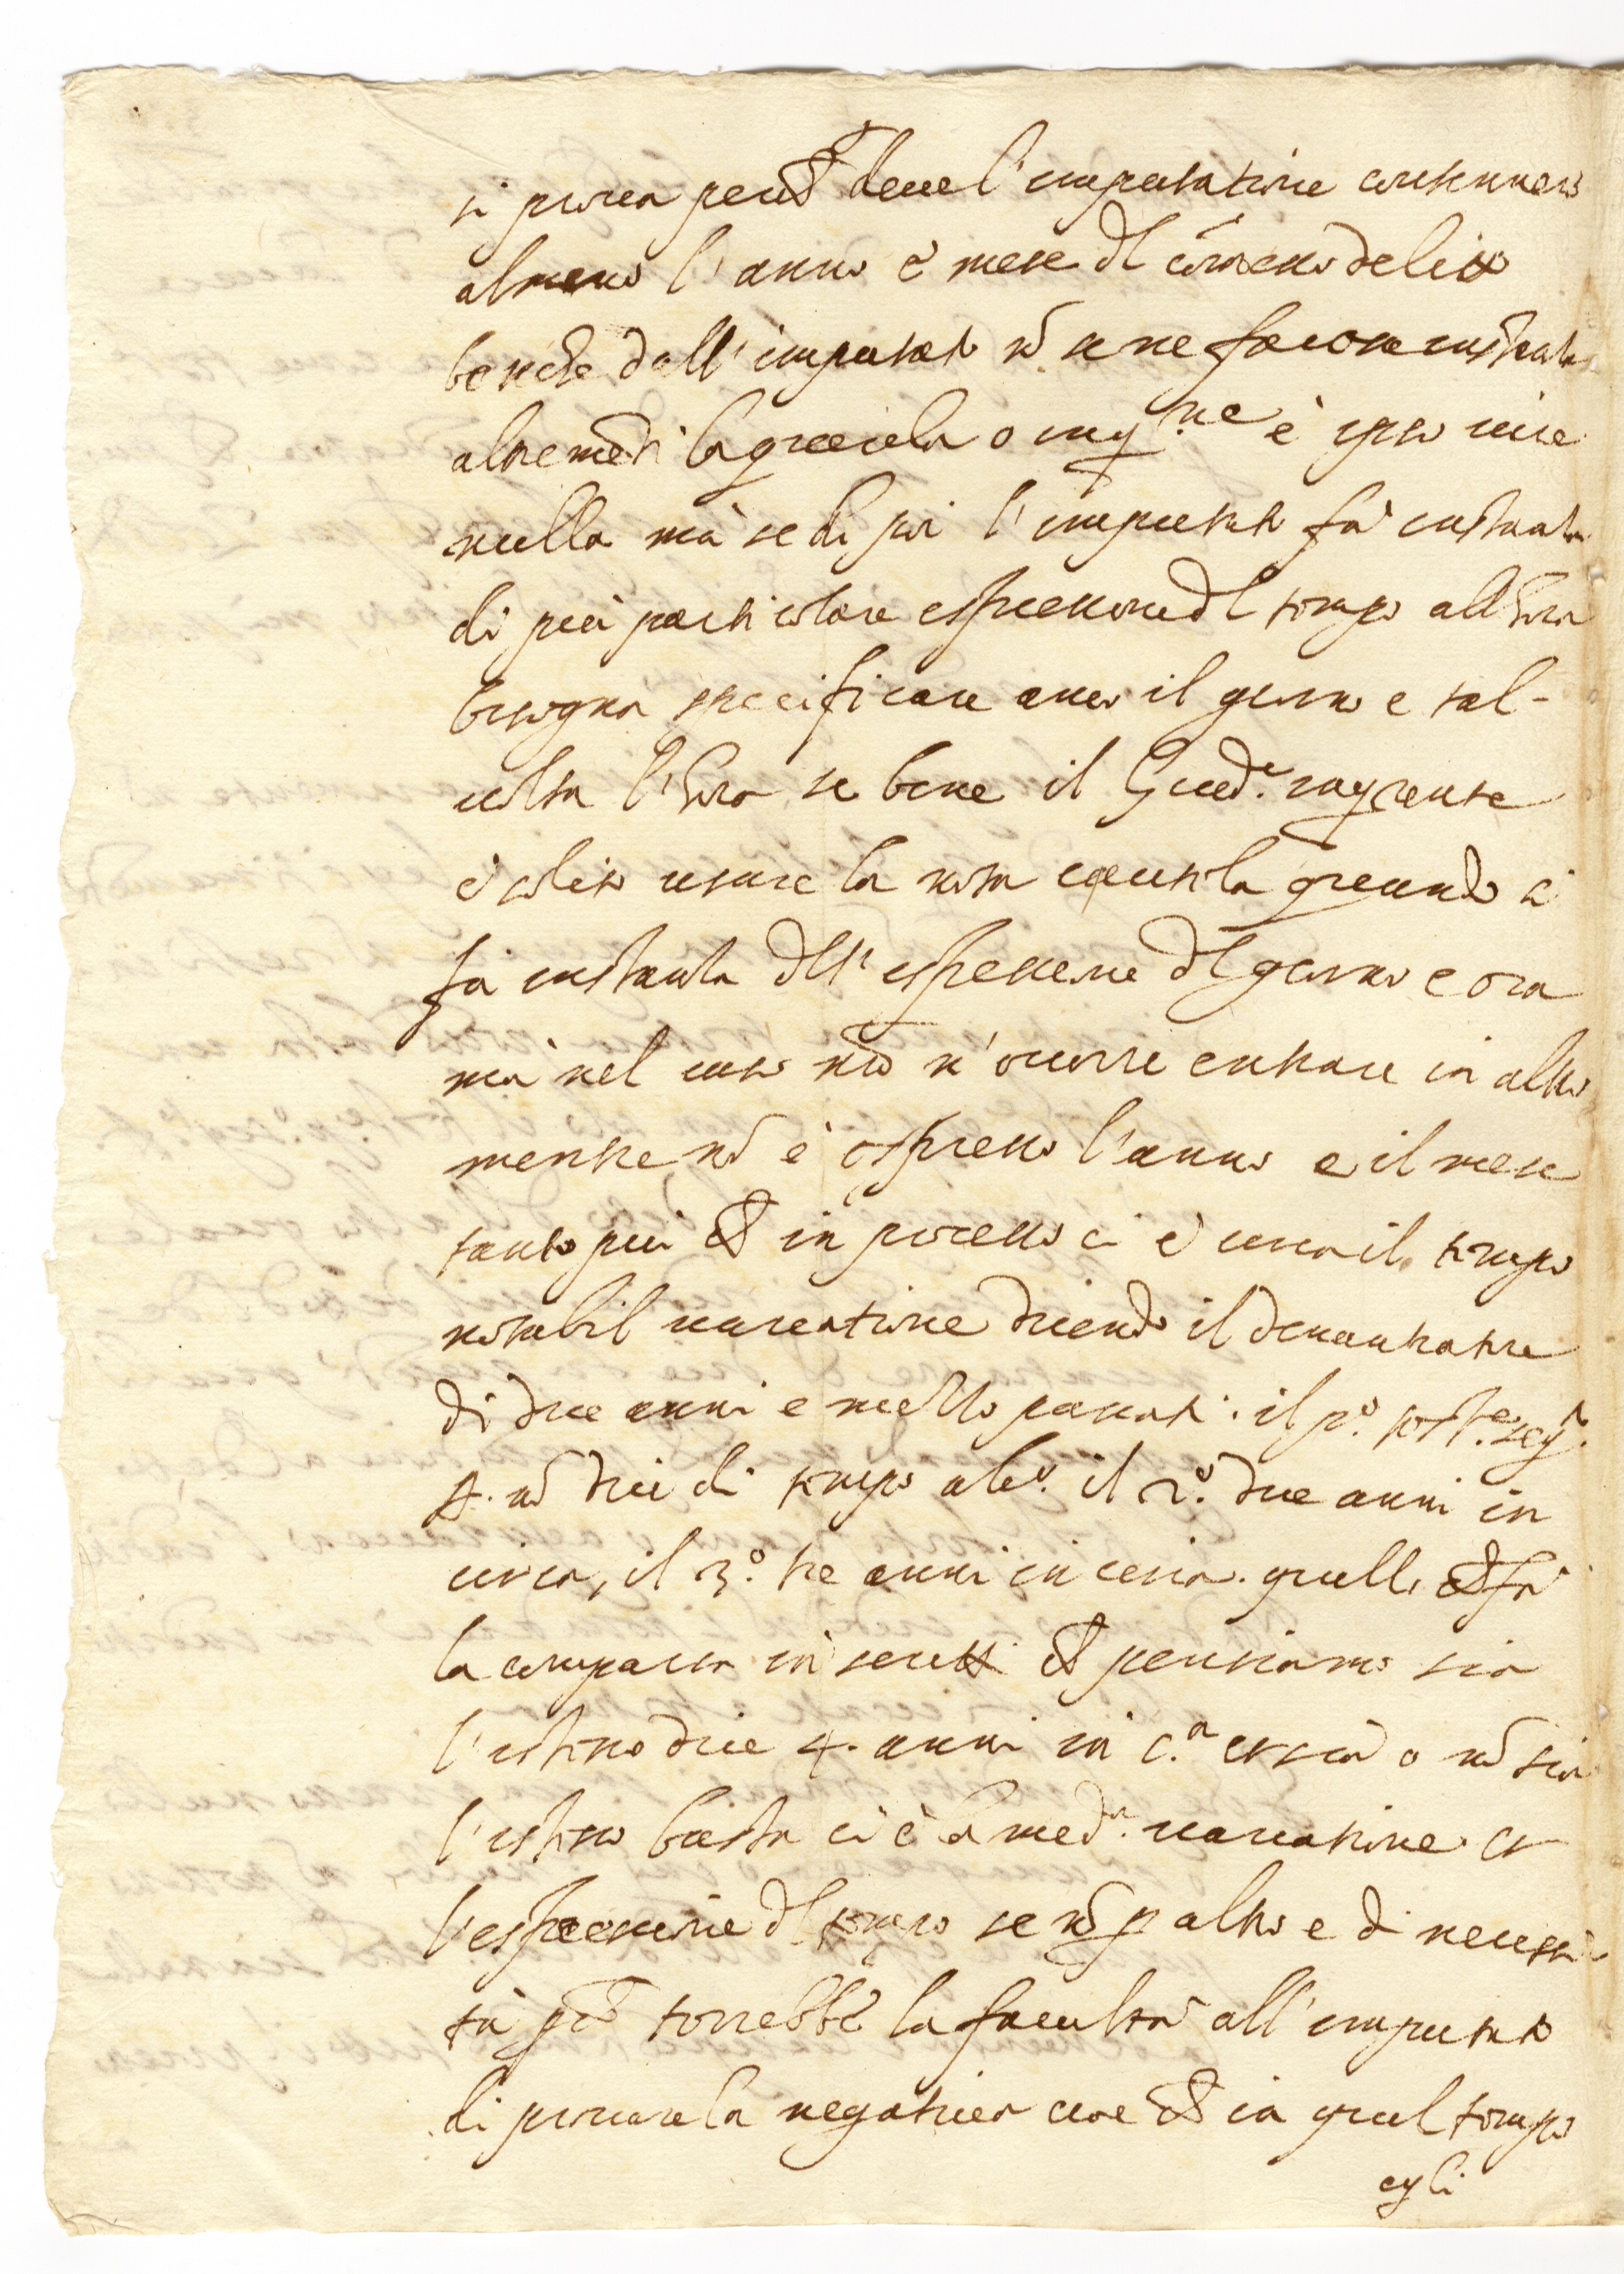 si prova perche deve l'imputatione contenere
almeno l'anno e mese dl comesso delitto
benche dall'imputato nõ se ne facesse instanta
altremẽti la querela o inq.ne è ipso iure
nulla mà se di poi l'imputato fà instanta
di più particolare espressione dl tempo all'hora
bisogna specificare anco il giorno e tal-
volta l'hora se bene il Giud.e inqrente
è solito usare la nota cautela quando si
fà instanta dll'espressione dl giorno e ora
mà nel caso nrõ n'occorre entrare in altro
mentre nõ è espresso l'anno e il mese
tanto più che in processo ci è circa il tempo
notabil variatione dicendo il denuntiatore
di due anni e mezzo passati. il p.o test.e
4. nõ dice di tempo alc.o il 2.o due anni in
circa, il 3.o tre anni in circa. quello che fà
la comparsa in scritti che pensiamo sia
l'istesso dice 4. anni in c.a et sia o nõ sia
l'istesso basta ci è la med.a variatione et
l'espressione dl tempo se nõ p altro e di necessi
tà pche torrebbe la facultà all'imputato
di provare la negativa cioe che in quel tempo
egli